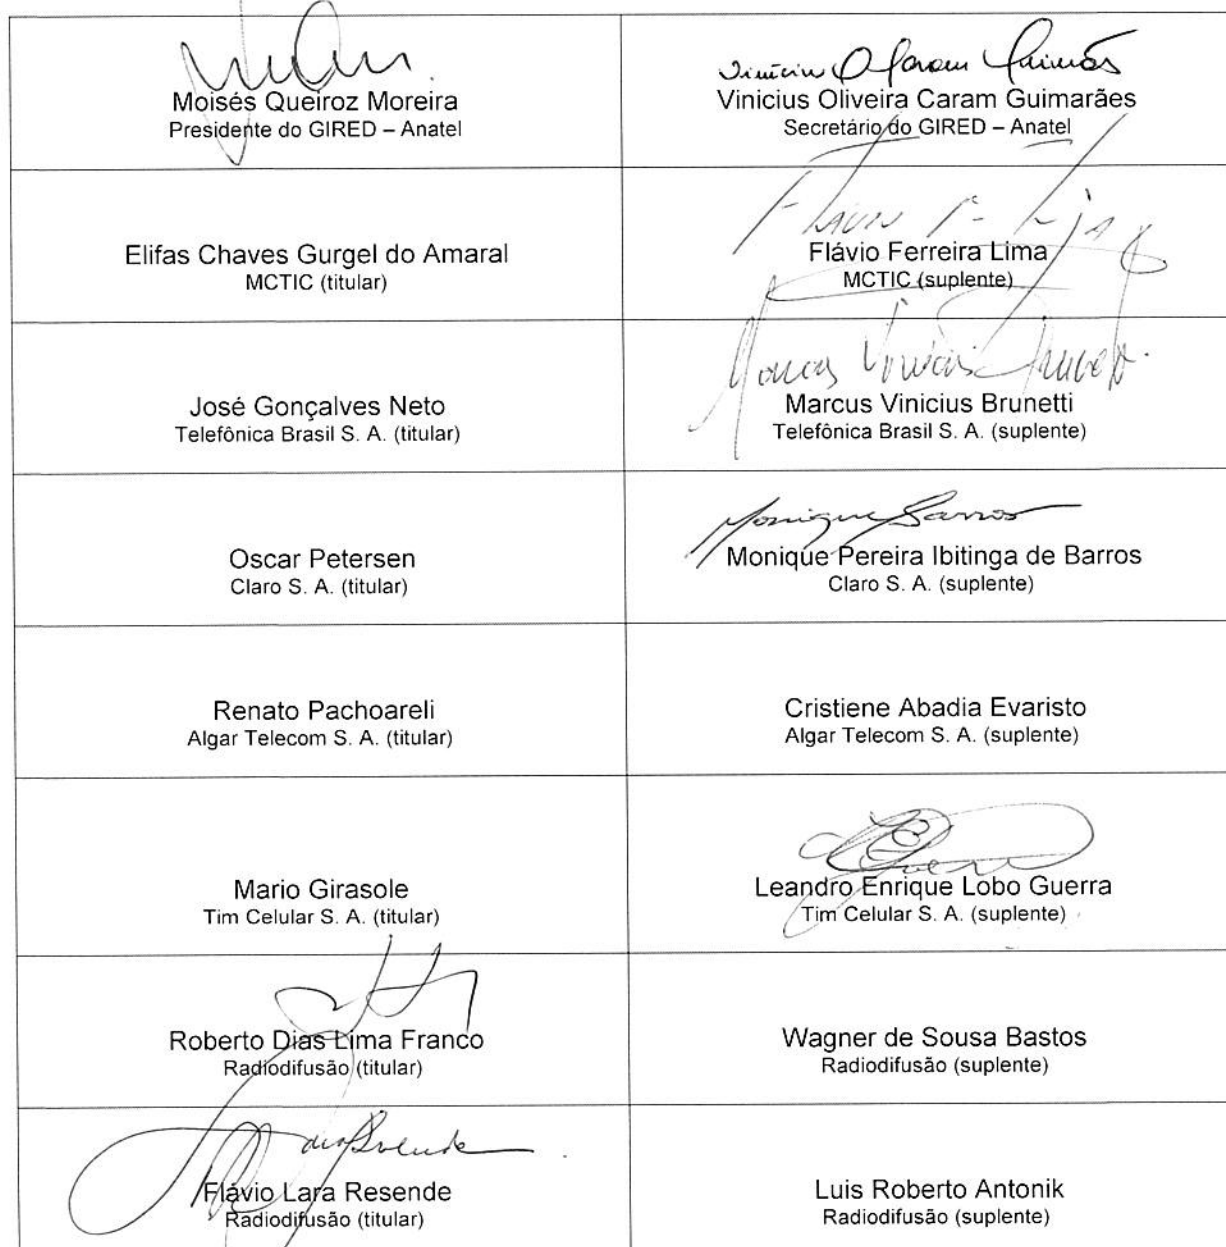 Moisés Queiroz Moreira
Presidente do GIRED – Anatel
Vinicius O Caram Guimarães
Vinicius Oliveira Caram Guimarães
Secretário do GIRED – Anatel
Elifas Chaves Gurgel do Amaral
MCTIC (titular)
Flávio F. Lima
Flávio Ferreira Lima
MCTIC (suplente)
José Gonçalves Neto
Telefônica Brasil S. A. (titular)
Marcus Vinicius Brunetti
Marcus Vinicius Brunetti
Telefônica Brasil S. A. (suplente)
Oscar Petersen
Claro S. A. (titular)
Monique Barros
Monique Pereira Ibitinga de Barros
Claro S. A. (suplente)
Renato Pachoareli
Algar Telecom S. A. (titular)
Cristiene Abadia Evaristo
Algar Telecom S. A. (suplente)
Mario Girasole
Tim Celular S. A. (titular)
Leandro Enrique Lobo Guerra
Tim Celular S. A. (suplente)
Roberto Dias Lima Franco
Radiodifusão (titular)
Wagner de Sousa Bastos
Radiodifusão (suplente)
Flávio Lara Resende
Radiodifusão (titular)
Luis Roberto Antonik
Radiodifusão (suplente)